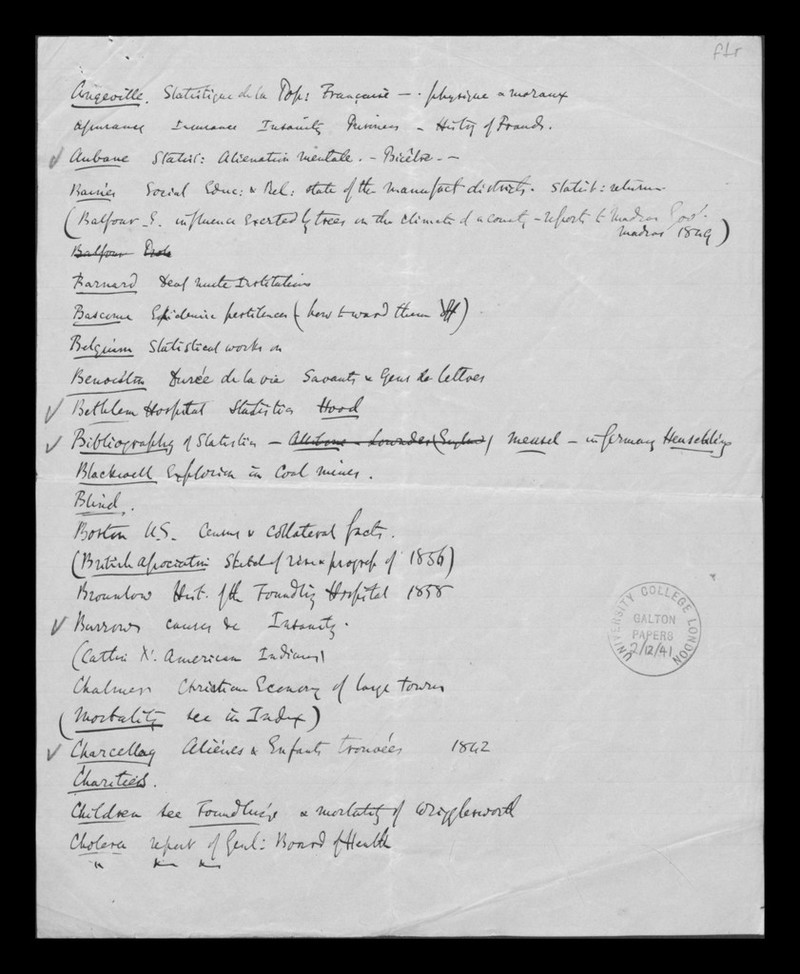 f1r
Angeville. Statistique de la Pop: Française — . physique & moraux
Assurance Insurance Insanity Business – Histy of Frauds.
✓ Aubane Statist: Alienation mentale. – Bicêtre. –
Baines Social Educ: & Rel: state of the manufact districts. Statist: returns
(Balfour. E. influence exerted by trees on the climate of a country – reports to Madras Govt.
Madras 1849)
Balfour
Barnard Deaf mute Institutions
Bascome Epidemic pestilences (how to ward them off)
Belgium Statistical works on
Benoiston Durée de la vie Savants & Gens de lettres
✓ Bethlem Hospital Statistics Hood
✓ Bibliography of Statistics – Allibone & Lowndes (England) Meusel – in Germany Heuschling
Blackwell Explosion in Coal mines.
Blind.
Boston U.S. Census & Collateral facts.
(British Association Sketch of rise & progress of 1856)
Brownlow Hist. of the Foundling Hospital 1858
✓ Burrows causes &c Insanity.
(Catlin N. American Indians)
Chalmers Christian Economy of large towns
(Mortality see in Index)
✓ Charcellay Aliénés & Enfants trouvées 1842
Charities.
Children see Foundlings & mortality of Wrigglesworth
Cholera report of Genl: Board of Health
" " "
UNIVERSITY COLLEGE LONDON
GALTON
PAPERS
2/12/41